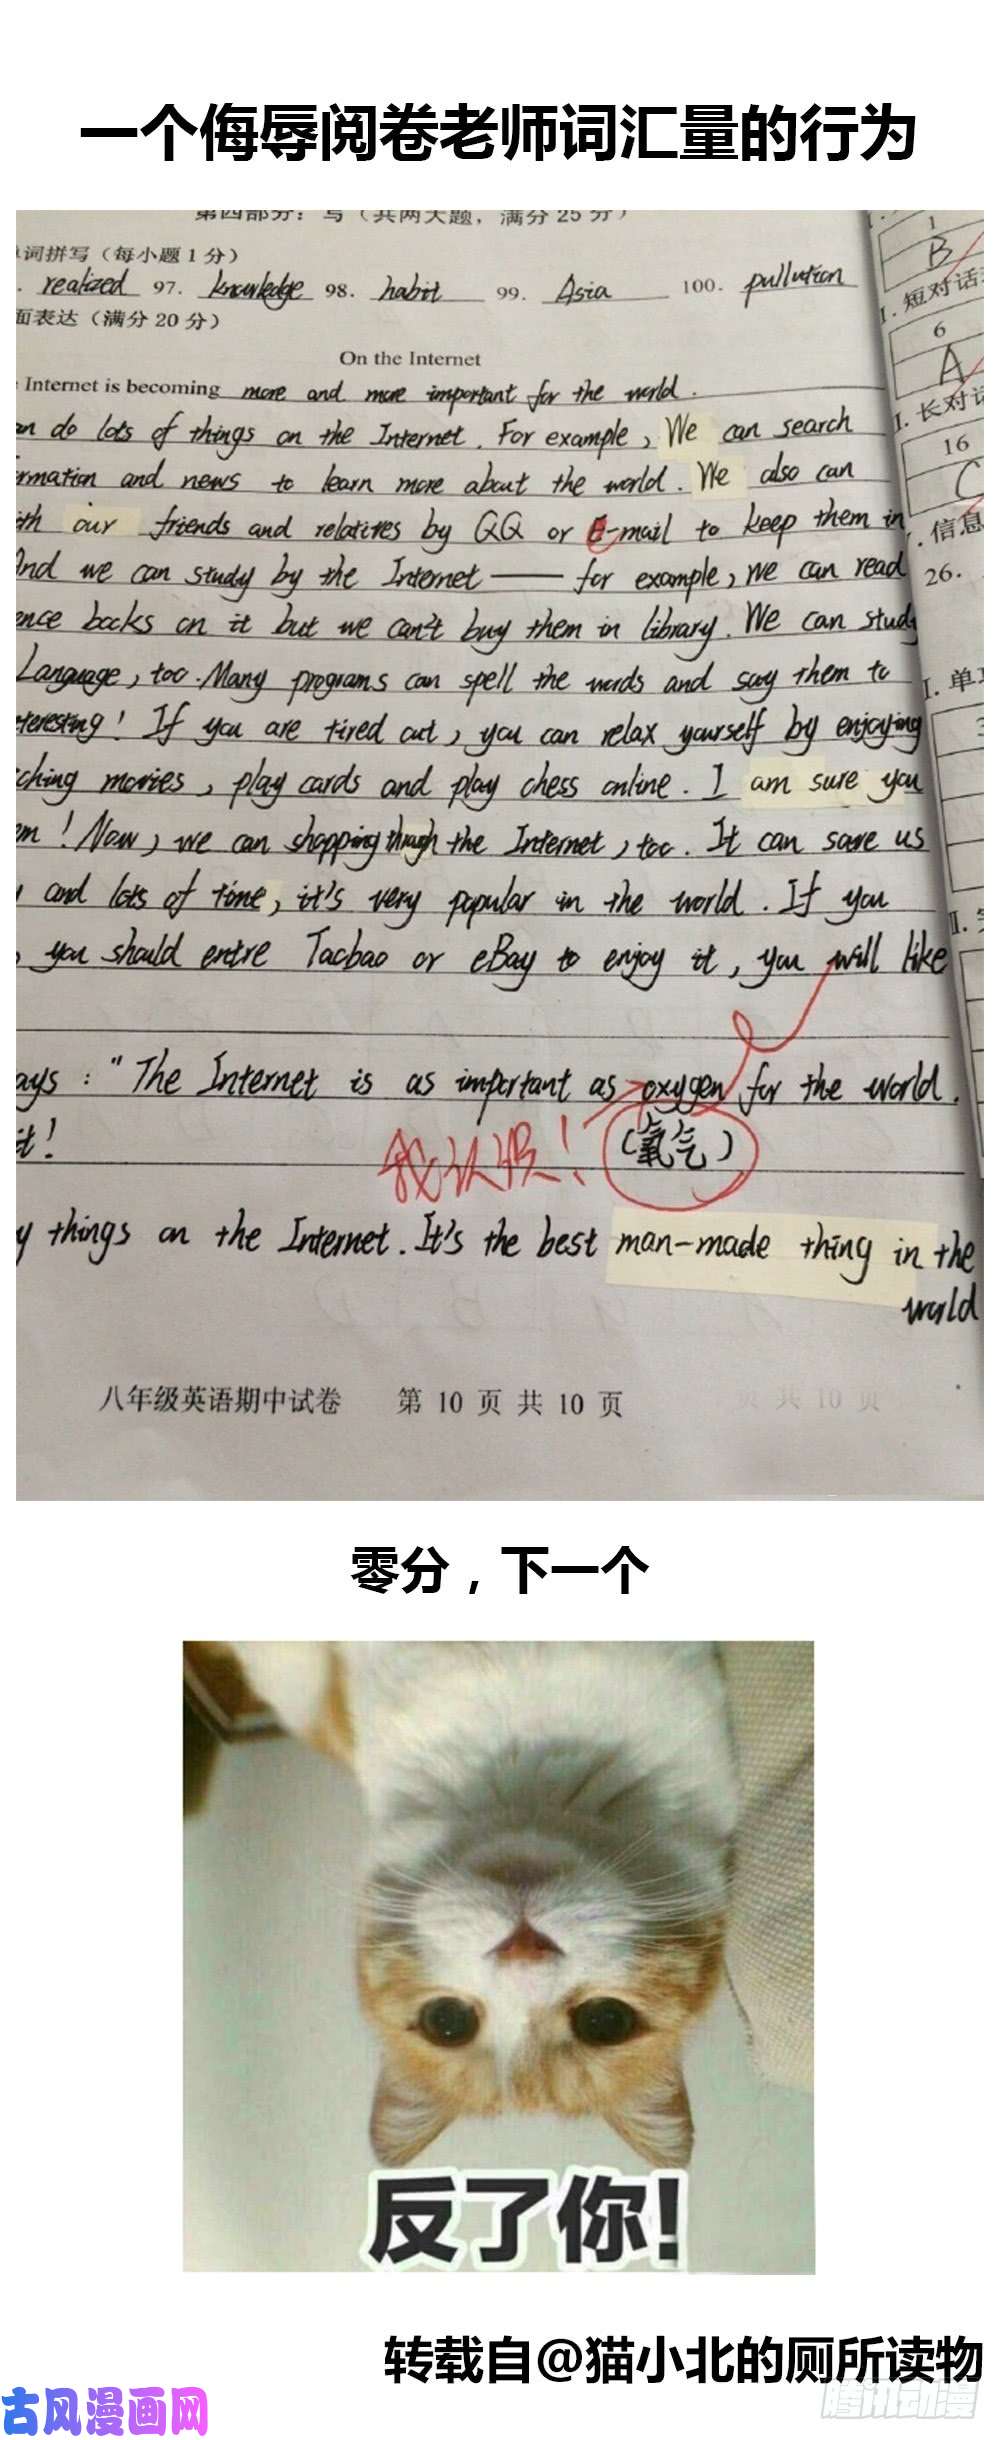 一个侮辱阅卷老师词汇量的行为
第四部分：写（共两大题，满分 25 分）
词拼写（每小题 1 分）
realized 97. knowledge 98. habit 99. Asia 100. pullution
面表达（满分 20 分）
On the Internet
Internet is becoming more and more important for the world.
an do lots of things on the Internet. For example, We can search
rmation and news to learn more about the world. We also can
ith our friends and relatives by QQ or E-mail to keep them in
And we can study by the Internet —— for example, we can read
ence books on it but we can't buy them in library. We can study
Language, too. Many programs can spell the words and say them to
teresting! If you are tired out, you can relax yourself by enjoying
ching movies, play cards and play chess online. I am sure you
em! Now, we can shopping through the Internet, too. It can save us
and lots of time, it's very popular in the world. If you
, you should entre Taobao or eBay to enjoy it, you will like
ays: "The Internet is as important as oxygen for the world.
it!
我认识！
（氧气）
y things on the Internet. It's the best man-made thing in the
world
八年级英语期中试卷 第 10 页 共 10 页
页 共 10 页
1
B
I. 短对话
6
A
I. 长对话
16
C
. 信息
26.
I. 单
II.
零分，下一个
反了你!
转载自@猫小北的厕所读物
古风漫画网
腾讯动漫